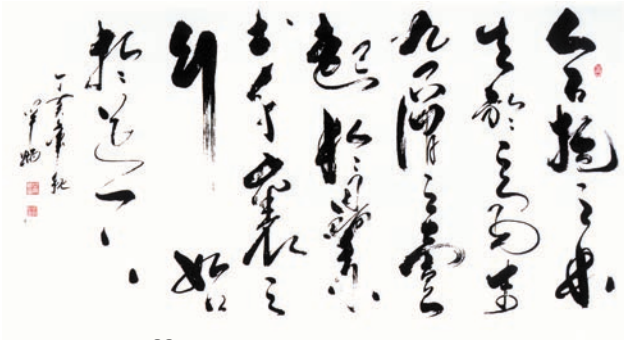 合抱之木
生於毫末
九層之臺
起於累
土千里之
行始
於足下
丁亥年秋